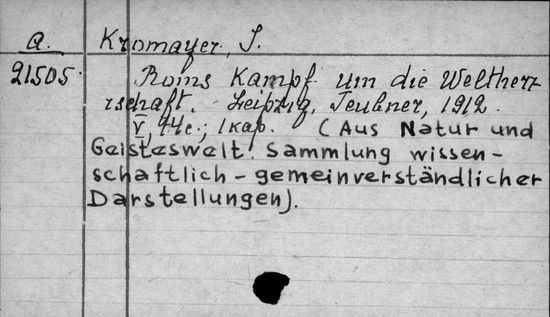 a. Kromayer, J.
21505. Roms Kampf um die Weltherr
rschaft. Leipzig, Teubner, 1912.
V, 74c.; 1 kap. (Aus Natur und
Geisteswelt. Sammlung wissen-
schaftlich-gemeinverständlicher
Darstellungen).